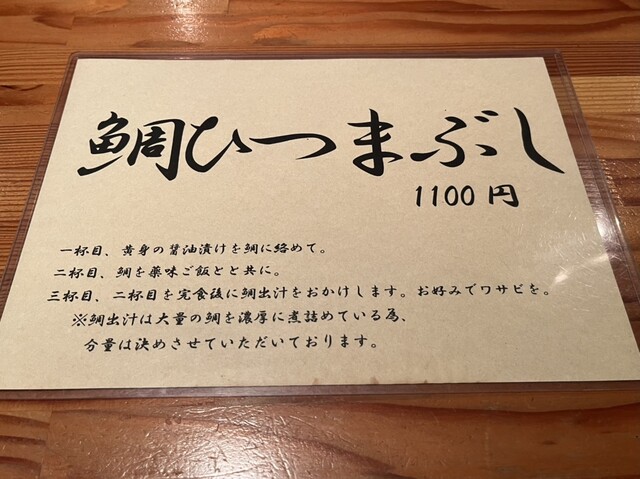 鯛ひつまぶし
1100 円
一杯目、黄身の醤油漬けを鯛に絡めて。
二杯目、鯛を薬味ご飯とと共に。
三杯目、二杯目を完食後に鯛出汁をおかけします。お好みでワサビを。
※鯛出汁は大量の鯛を濃厚に煮詰めている為、
分量は決めさせていただいております。